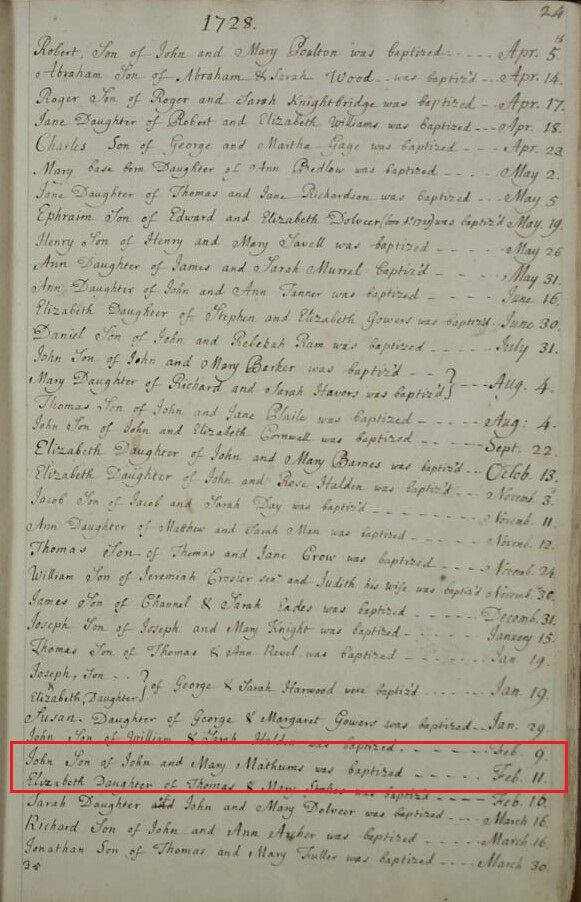 1728.
24
Robert, Son of John and Mary Poulton was baptized - - - - Apr. 5.
Abraham Son of Abraham & Sarah Wood was baptiz'd - - Apr. 14.
Roger Son of Roger and Sarah Knightbridge was baptized - - Apr. 17.
Jane Daughter of Robert and Elizabeth Williams was baptized - - - Apr. 18.
Charles Son of George and Martha Gage was baptized - - - - Apr. 23
Mary base born Daughter of Ann Bedlow was baptized - - - - May 2.
Jane Daughter of Thomas and Jane Richardson was baptized - - - May 5
Ephraim Son of Edward and Elizabeth Dolveer was baptiz'd May. 19.
Henry Son of Henry and Mary Savell was baptized - - - - May 26
Ann Daughter of James and Sarah Murrel baptiz'd - - - - May 31.
Ann Daughter of John and Ann Tanner was baptized - - - - June 16.
Elizabeth Daughter of Stephen and Elizabeth Gowers was baptiz'd. June 30.
Daniel Son of John and Rebekah Ram was baptized - - - - July 31.
John Son of John and Mary Barker was baptiz'd - -
Mary Daughter of Richard and Sarah Havers was baptiz'd } - - Aug. 4.
Thomas Son of John and Jane was baptized - - - - Aug: 4.
John Son of John and Elizabeth Cornwall was baptized - - - - Sept. 22.
Elizabeth Daughter of John and Mary Barnes was baptiz'd - - Octob. 13.
Elizabeth Daughter of John and Rose Halden was baptiz'd - - Novemb. 3.
Jacob Son of Jacob and Sarah Day was baptiz'd - - - - Novemb. 11.
Ann Daughter of Matthew and Sarah Man was baptized - - - - Novemb. 12.
Thomas Son of Thomas and Jane Crow was baptized - - - - Novemb. 24
William Son of Jeremiah Crosier senr and Judith his wife was baptiz'd Novemb. 30.
James Son of Channel & Sarah Eades was baptized - - - - Decemb. 31.
Joseph Son of Joseph and Mary Knight was baptized - - - - January 15.
Thomas Son of Thomas & Ann Revel was baptized - - - - Jan. 19.
Joseph, Son - -
& Elizabeth, Daughter } of George & Sarah Harwood were baptiz'd - - - - Jan. 19
Susan Daughter of George & Margaret Gowers was baptized - - Jan. 29
John Son of William & Sarah Halden was baptized - - - - Feb. 9.
John Son of John and Mary Mathums was baptized - - - - Feb. 11.
Elizabeth Daughter of Thomas & Mary was baptiz'd - - - - Feb. 16.
Sarah Daughter John and Mary Dolveer was baptized - - - - March 16.
Richard Son of John and Ann Archer was baptized - - - - March 16.
Jonathan Son of Thomas and Mary Fuller was baptized - - - - March 30.